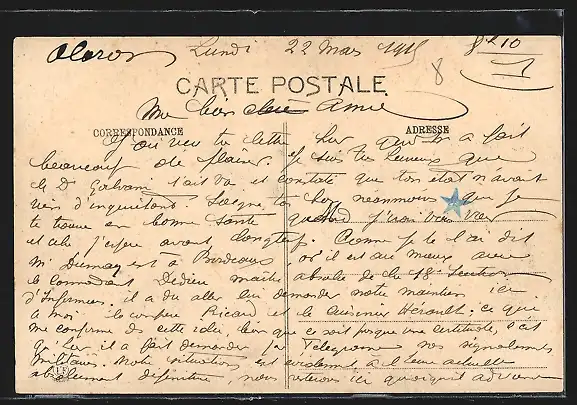 Oloron Lundi 22 Mars 1915 8
CARTE POSTALE
Ma bien chère Amie
CORRESPONDANCE ADRESSE
J'ai reçu ta lettre hier qui m'a fait
beaucoup de plaisir. Je suis très heureux que
le Dr Galvani t'ait vu et constaté que ton état n'avait
rien d'inquiétant. Soigne toi bien néanmoins que je
te trouve en bonne santé quand j'irai vous voir
et cela j'espère avant longtemps. Comme je te l'ai dit
Mr Dumay est à Bordeaux où il est au mieux avec
le commandant Dedieu maître absolu de la 18e Section
d'Infirmiers. il a du aller lui demander notre maintien ici
à moi, le confrère Picard et le cuisinier Hérault; ce qui
me confirme dans cette idée bien que ce soit presque une certitude, c'est
qu'hier il a fait demander par Télégramme nos signalements
militaires. Notre situation est évidemment à l'heure actuelle
absolument définitive, nous resterons ici quoiqu'il advienne